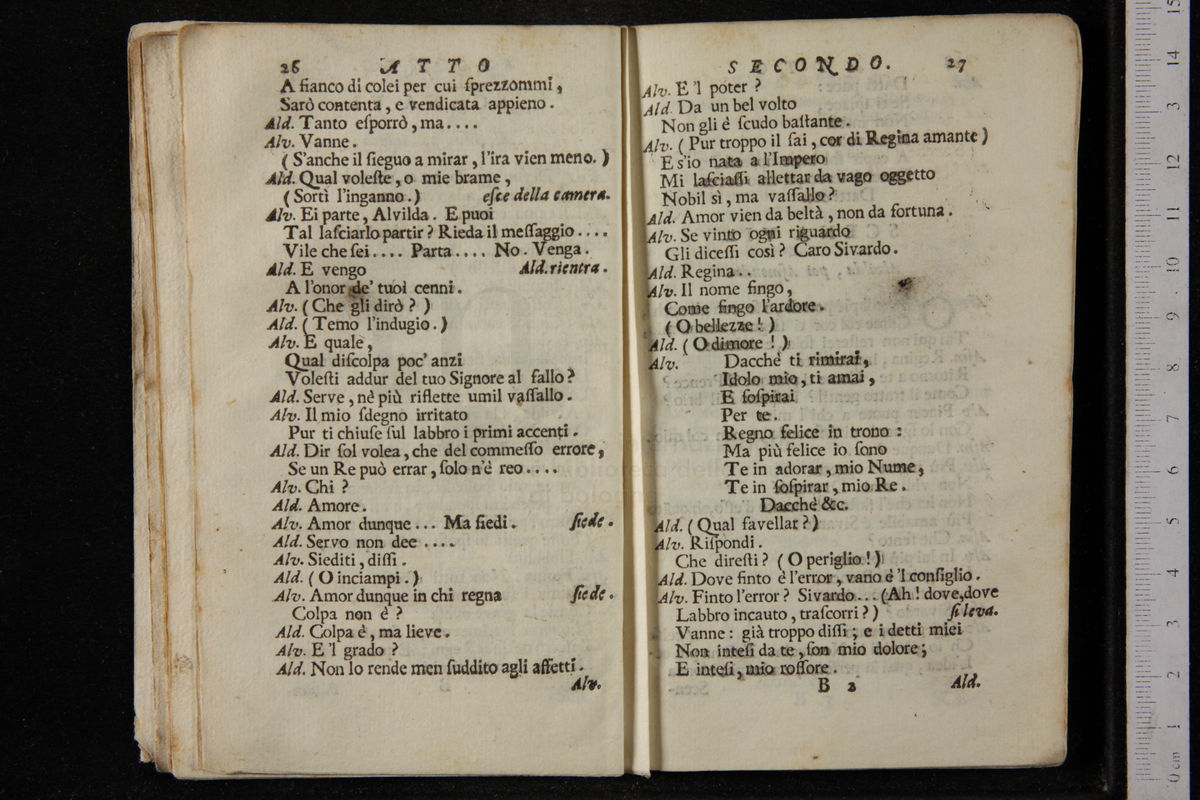 26 ATTO
A fianco di colei per cui ſprezzommi,
Sarò contenta, e vendicata appieno.
Ald. Tanto eſporrò, ma....
Alv. Vanne.
(S'anche il ſieguo a mirar, l'ira vien meno.)
Ald. Qual voleſte, o mie brame,
(Sortì l'inganno.) eſce della camera.
Alv. Ei parte, Alvilda. E puoi
Tal laſciarlo partir? Rieda il meſſaggio....
Vile che ſei.... Parta.... No. Venga.
Ald. E vengo Ald. rientra.
A l'onor de' tuoi cenni.
Alv. (Che gli dirò?)
Ald. (Temo l'indugio.)
Alv. E quale,
Qual diſcolpa poc' anzi
Voleſti addur del tuo Signore al fallo?
Ald. Serve, nè più riflette umil vaſſallo.
Alv. Il mio ſdegno irritato
Pur ti chiuſe ſul labbro i primi accenti.
Ald. Dir ſol volea, che del commeſſo errore,
Se un Re può errar, ſolo n'è reo....
Alv. Chi?
Ald. Amore.
Alv. Amor dunque... Ma ſiedi. ſiede.
Ald. Servo non dee....
Alv. Siediti, diſſi.
Ald. (O inciampi.)
Alv. Amor dunque in chi regna ſiede.
Colpa non è?
Ald. Colpa è, ma lieve.
Alv. E 'l grado?
Ald. Non lo rende men ſuddito agli affetti.
Alv.
SECONDO. 27
Alv. E 'l poter?
Ald. Da un bel volto
Non gli è ſcudo baſtante.
Alv. (Pur troppo il ſai, cor di Regina amante)
E s'io nata a l'Impero
Mi laſciaſſi allettar da vago oggetto
Nobil sì, ma vaſſallo?
Ald. Amor vien da beltà, non da fortuna.
Alv. Se vinto ogni riguardo
Gli diceſſi così? Caro Sivardo.
Ald. Regina..
Alv. Il nome fingo,
Come fingo l'ardore.
(O bellezze!)
Ald. (O dimore!)
Alv. Dacchè ti rimirai,
Idolo mio, ti amai,
E ſoſpirai
Per te.
Regno felice in trono:
Ma più felice io ſono
Te in adorar, mio Nume,
Te in ſoſpirar, mio Re.
Dacchè &c.
Ald. (Qual favellar?)
Alv. Riſpondi.
Che direſti? (O periglio!)
Ald. Dove finto è l'error, vano è 'l conſiglio.
Alv. Finto l'error? Sivardo... (Ah! dove, dove
Labbro incauto, traſcorri?) ſi leva.
Vanne: già troppo diſſi; e i detti miei
Non inteſi da te, ſon mio dolore;
E inteſi, mio roſſore.
B 2 Ald.